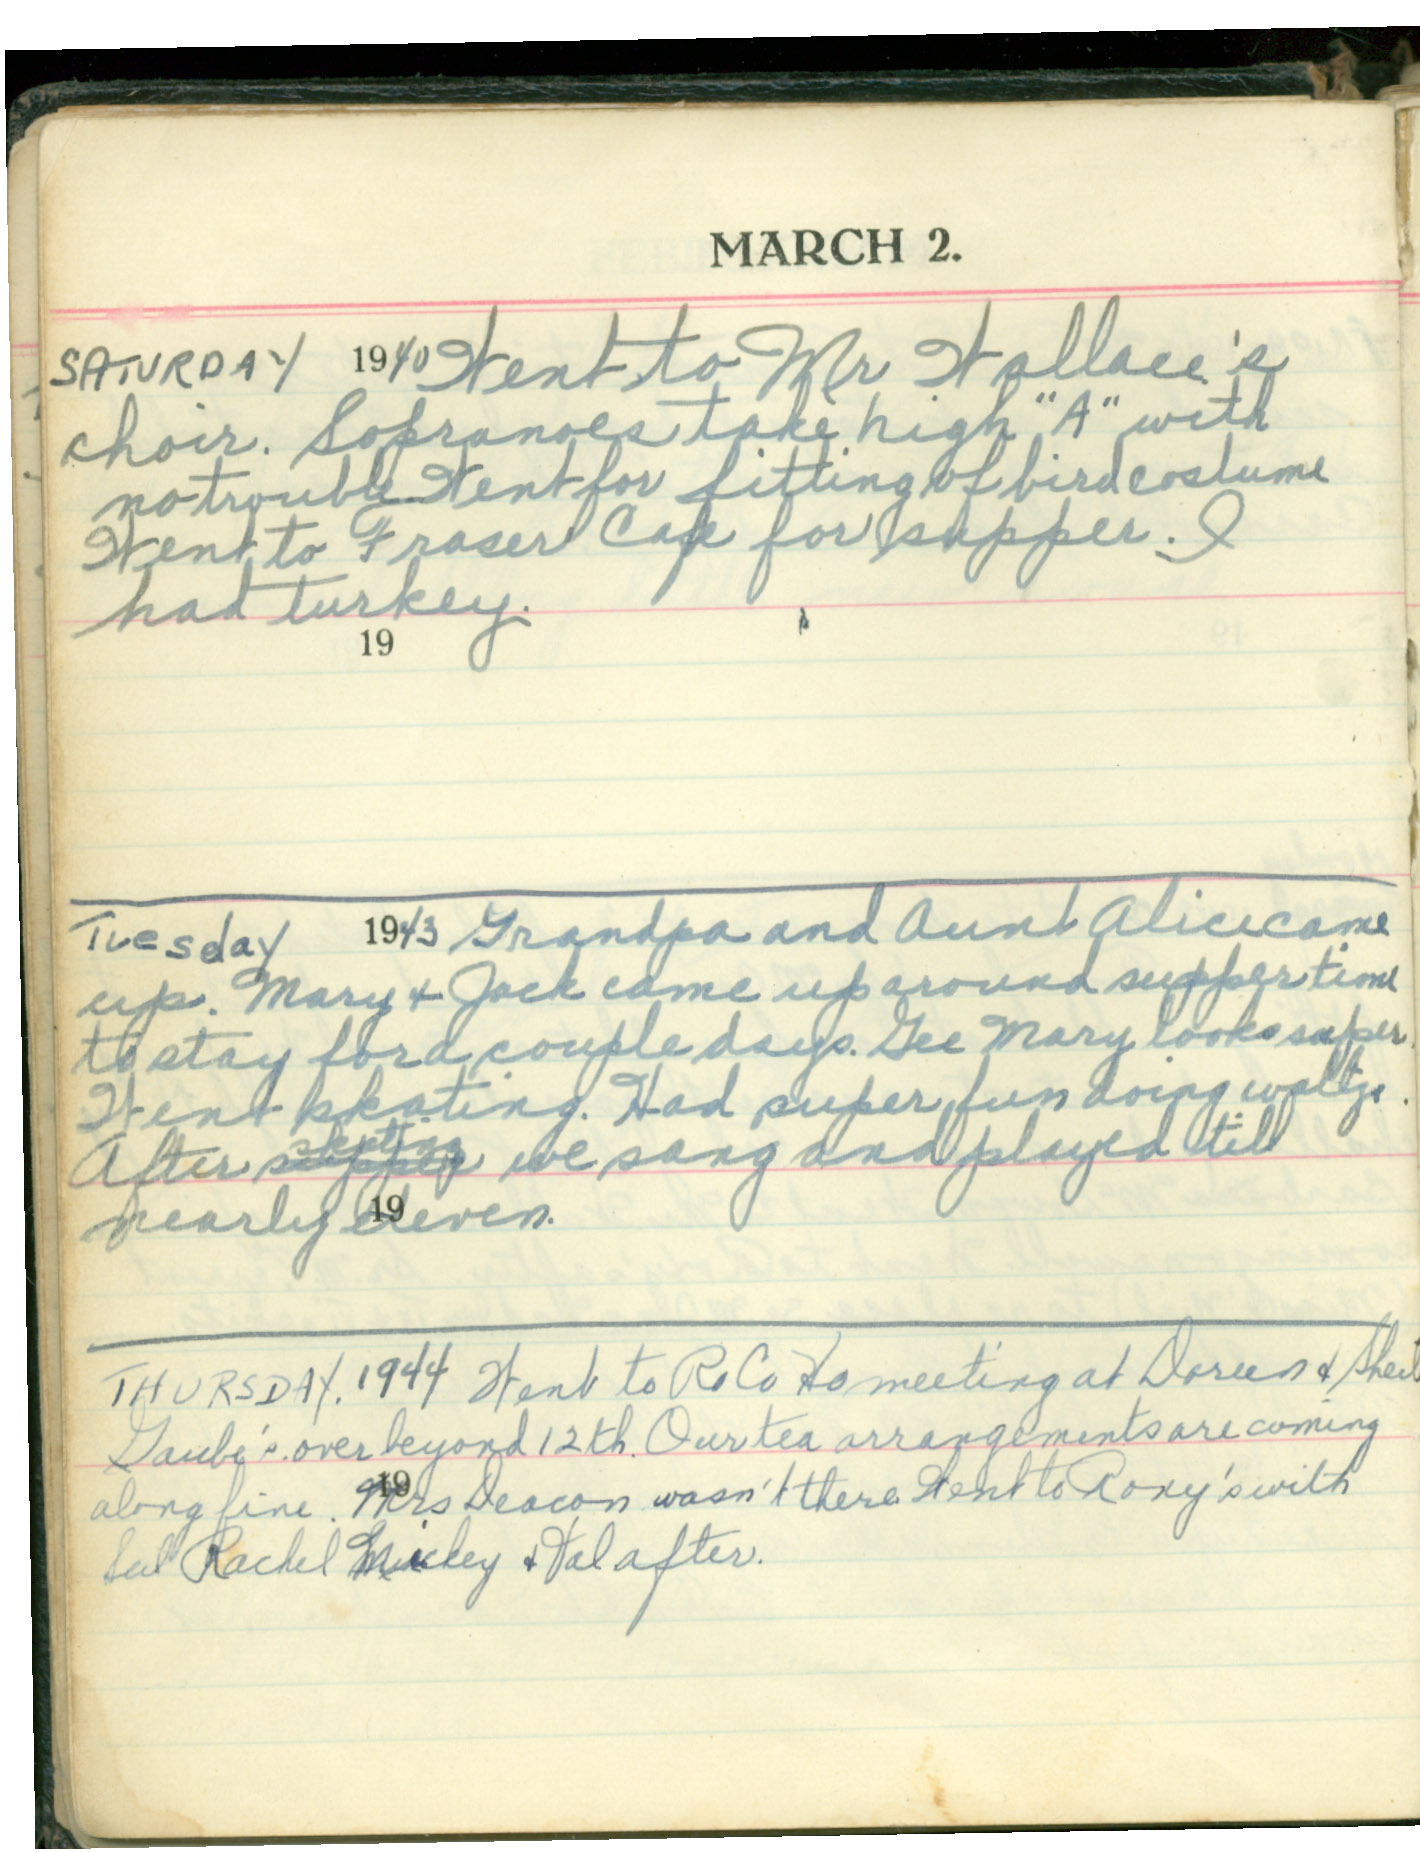 MARCH 2.
SATURDAY 1940 Went to Mr Wallace's
choir. Sopranoes take high "A" with
no trouble Went for fitting of bird costume
Went to Fraser Cafe for supper. I
had turkey.
19
Tuesday 1943 Grandpa and Aunt Alice came
up. Mary + Jack came up around supper time
to stay for a couple days. Gee Mary looks super.
Went skating. Had super fun doing waltzs.
After skating we sang and played till
nearly eleven.
19
THURSDAY, 1944 Went to Ro Co Ho meeting at Doreen +
over beyond 12th. Our tea arrangements are coming
along fine. Mrs Deacon wasn't there. Went to Roxy's with
19
Rachel Mickey + Val after.